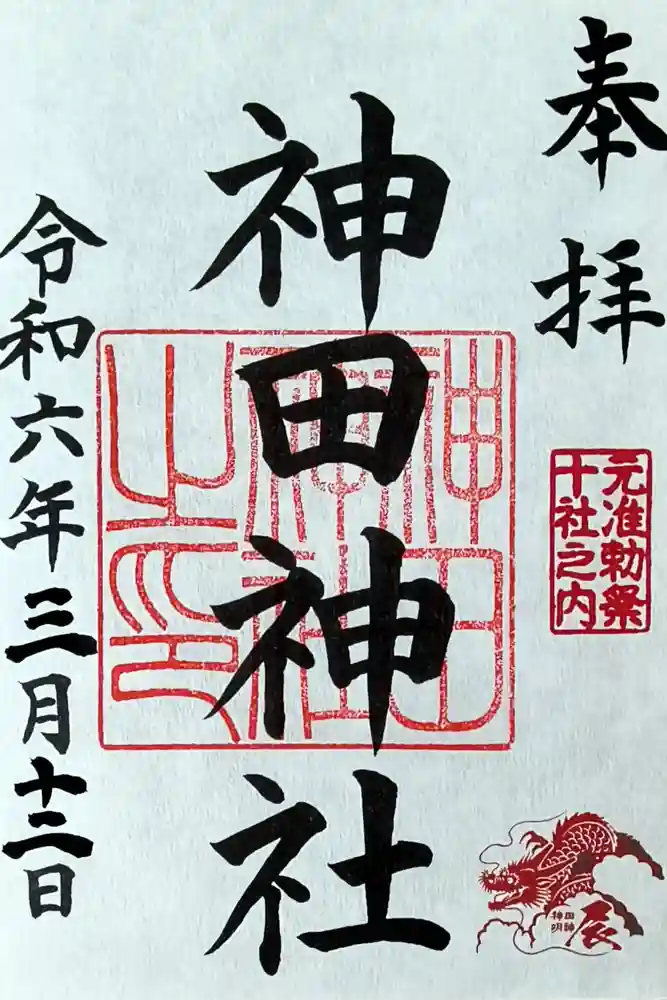 奉拝
元准勅祭
十社之内
神田神社
神田
神社
之印
辰
神田
明神
令和六年三月十二日